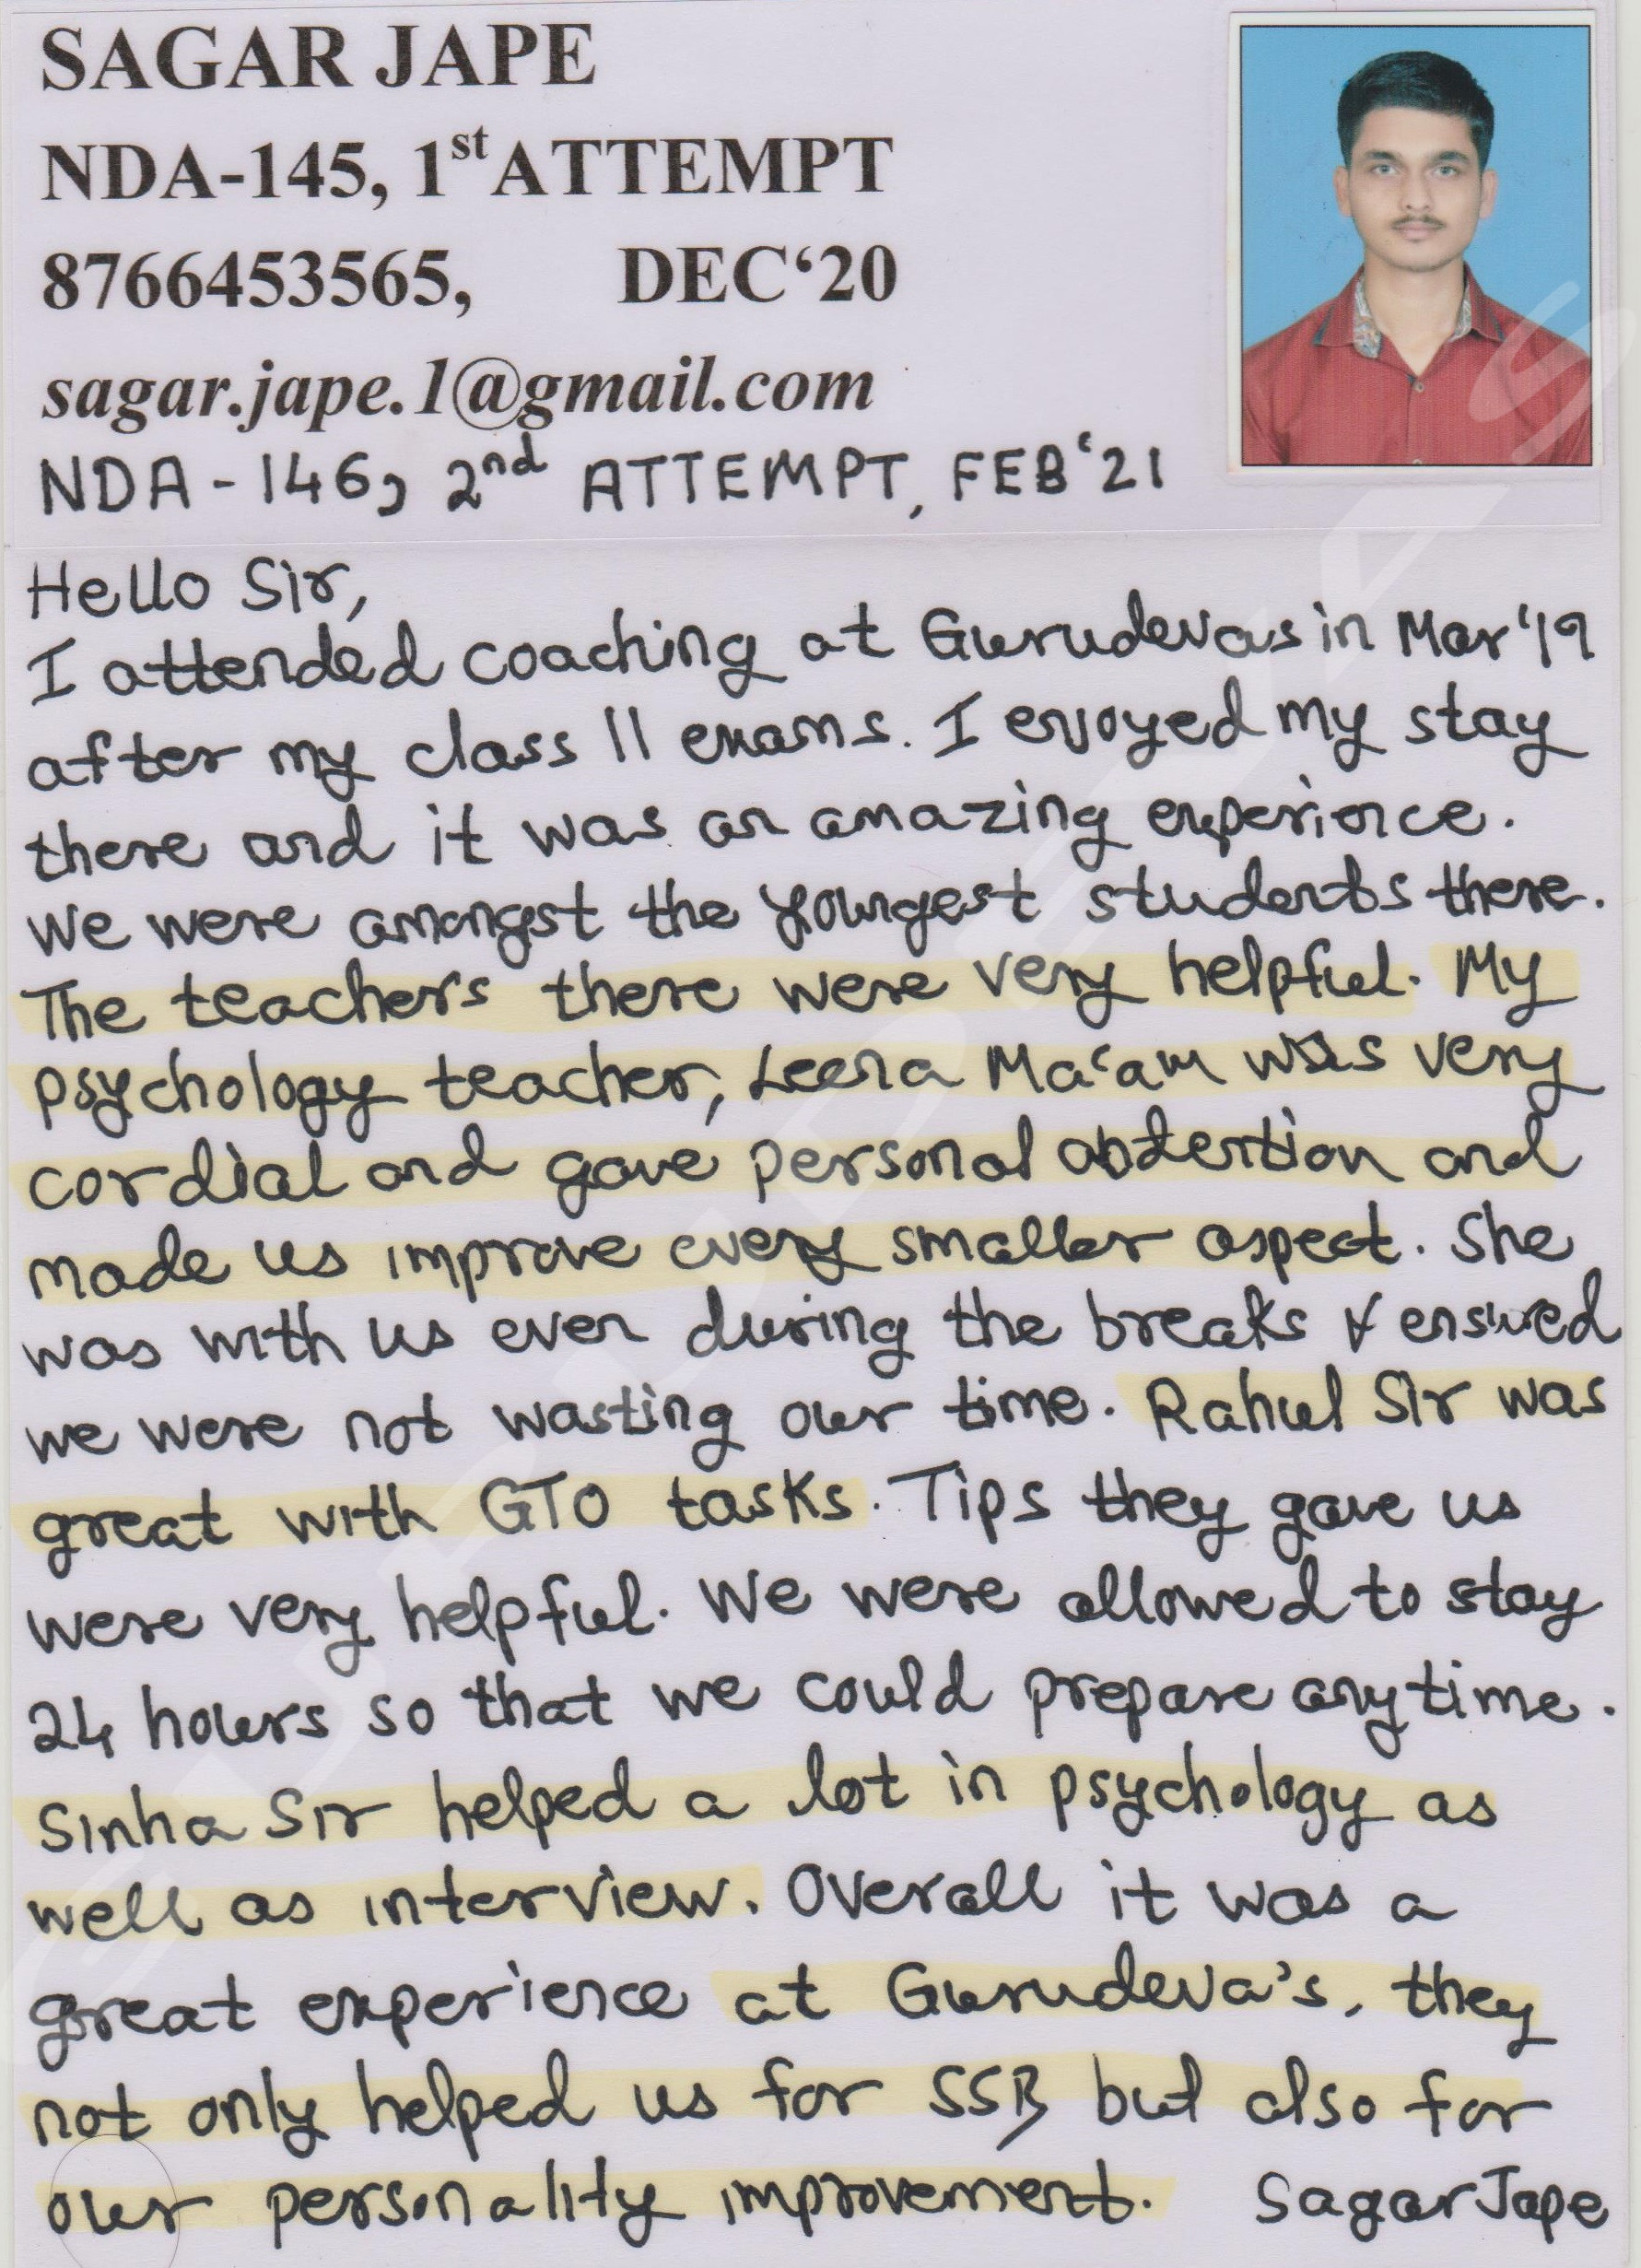 SAGAR JAPE
NDA-145, 1st ATTEMPT
8766453565, DEC‘20
sagar.jape.1@gmail.com
NDA-146, 2nd ATTEMPT, FEB‘21
Hello Sir,
I attended coaching at Gurudevas in Mar‘19
after my class 11 exams. I enjoyed my stay
there and it was an amazing experience.
We were amongst the youngest students there.
The teachers there were very helpful. My
psychology teacher, Leena Ma‘am was very
cordial and gave personal attention and
made us improve every smaller aspect. She
was with us even during the breaks & ensured
we were not wasting our time. Rahul Sir was
great with GTO tasks. Tips they gave us
were very helpful. We were allowed to stay
24 hours so that we could prepare anytime.
Sinha Sir helped a lot in psychology as
well as interview. Overall it was a
great experience at Gurudeva's, they
not only helped us for SSB but also for
our personality improvement. Sagar Jape